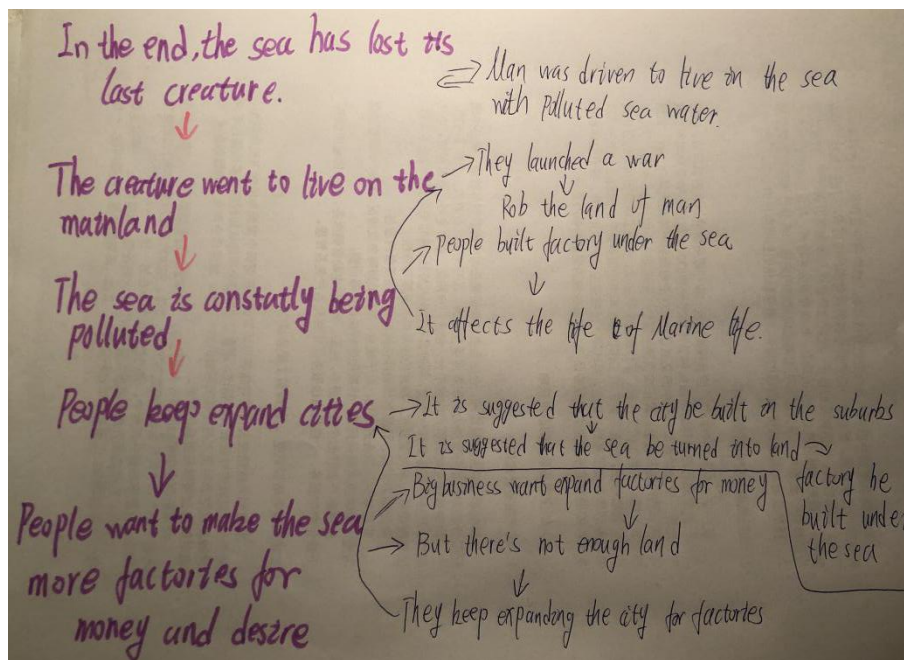 In the end, the sea has lost its
last creature.
The creature went to live on the
mainland
The sea is constatly being
polluted
People keep expand cities
People want to make the sea
more factories for
money and desire
Man was driven to live in the sea
with polluted sea water.
They launched a war
Rob the land of man
People built factory under the sea
It affects the life of Marine life.
It is suggested that the city be built in the suburbs
It is suggested that the sea be turned into land
factory be
built under
the sea
Big business want expand factories for money
But there's not enough land
They keep expanding the city for factories